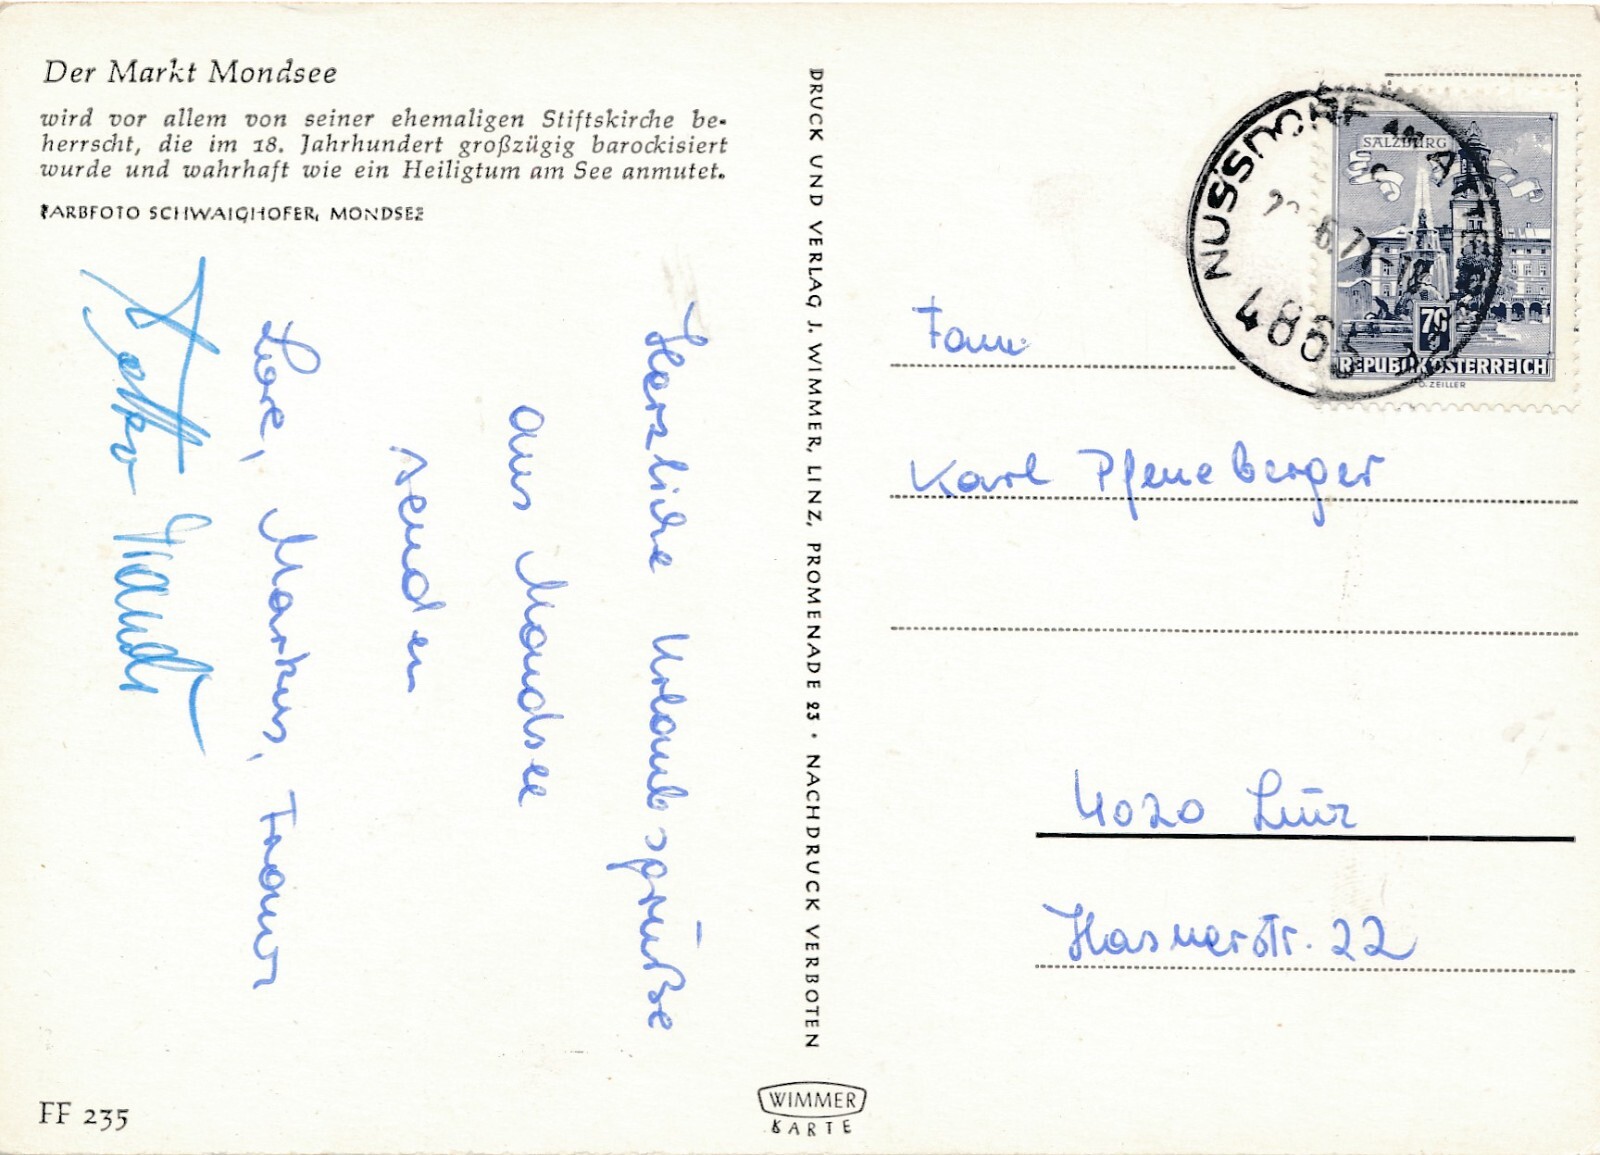 Der Markt Mondsee
wird vor allem von seiner ehemaligen Stiftskirche be-
herrscht, die im 18. Jahrhundert großzügig barockisiert
wurde und wahrhaft wie ein Heiligtum am See anmutet.
FARBFOTO SCHWAIGHOFER, MONDSEE
Herzliche Urlaubsgrüße
aus Mondsee
senden
Lore, Markus, Franz
FF 235
DRUCK UND VERLAG J. WIMMER, LINZ, PROMENADE 23 · NACHDRUCK VERBOTEN
WIMMER
KARTE
NUSSDORF AM ATTERSEE
4865
SALZBURG
REPUBLIK ÖSTERREICH
O. ZEILLER
Fam
Karl Pfeneberger
4020 Linz
Hasnerstr. 22